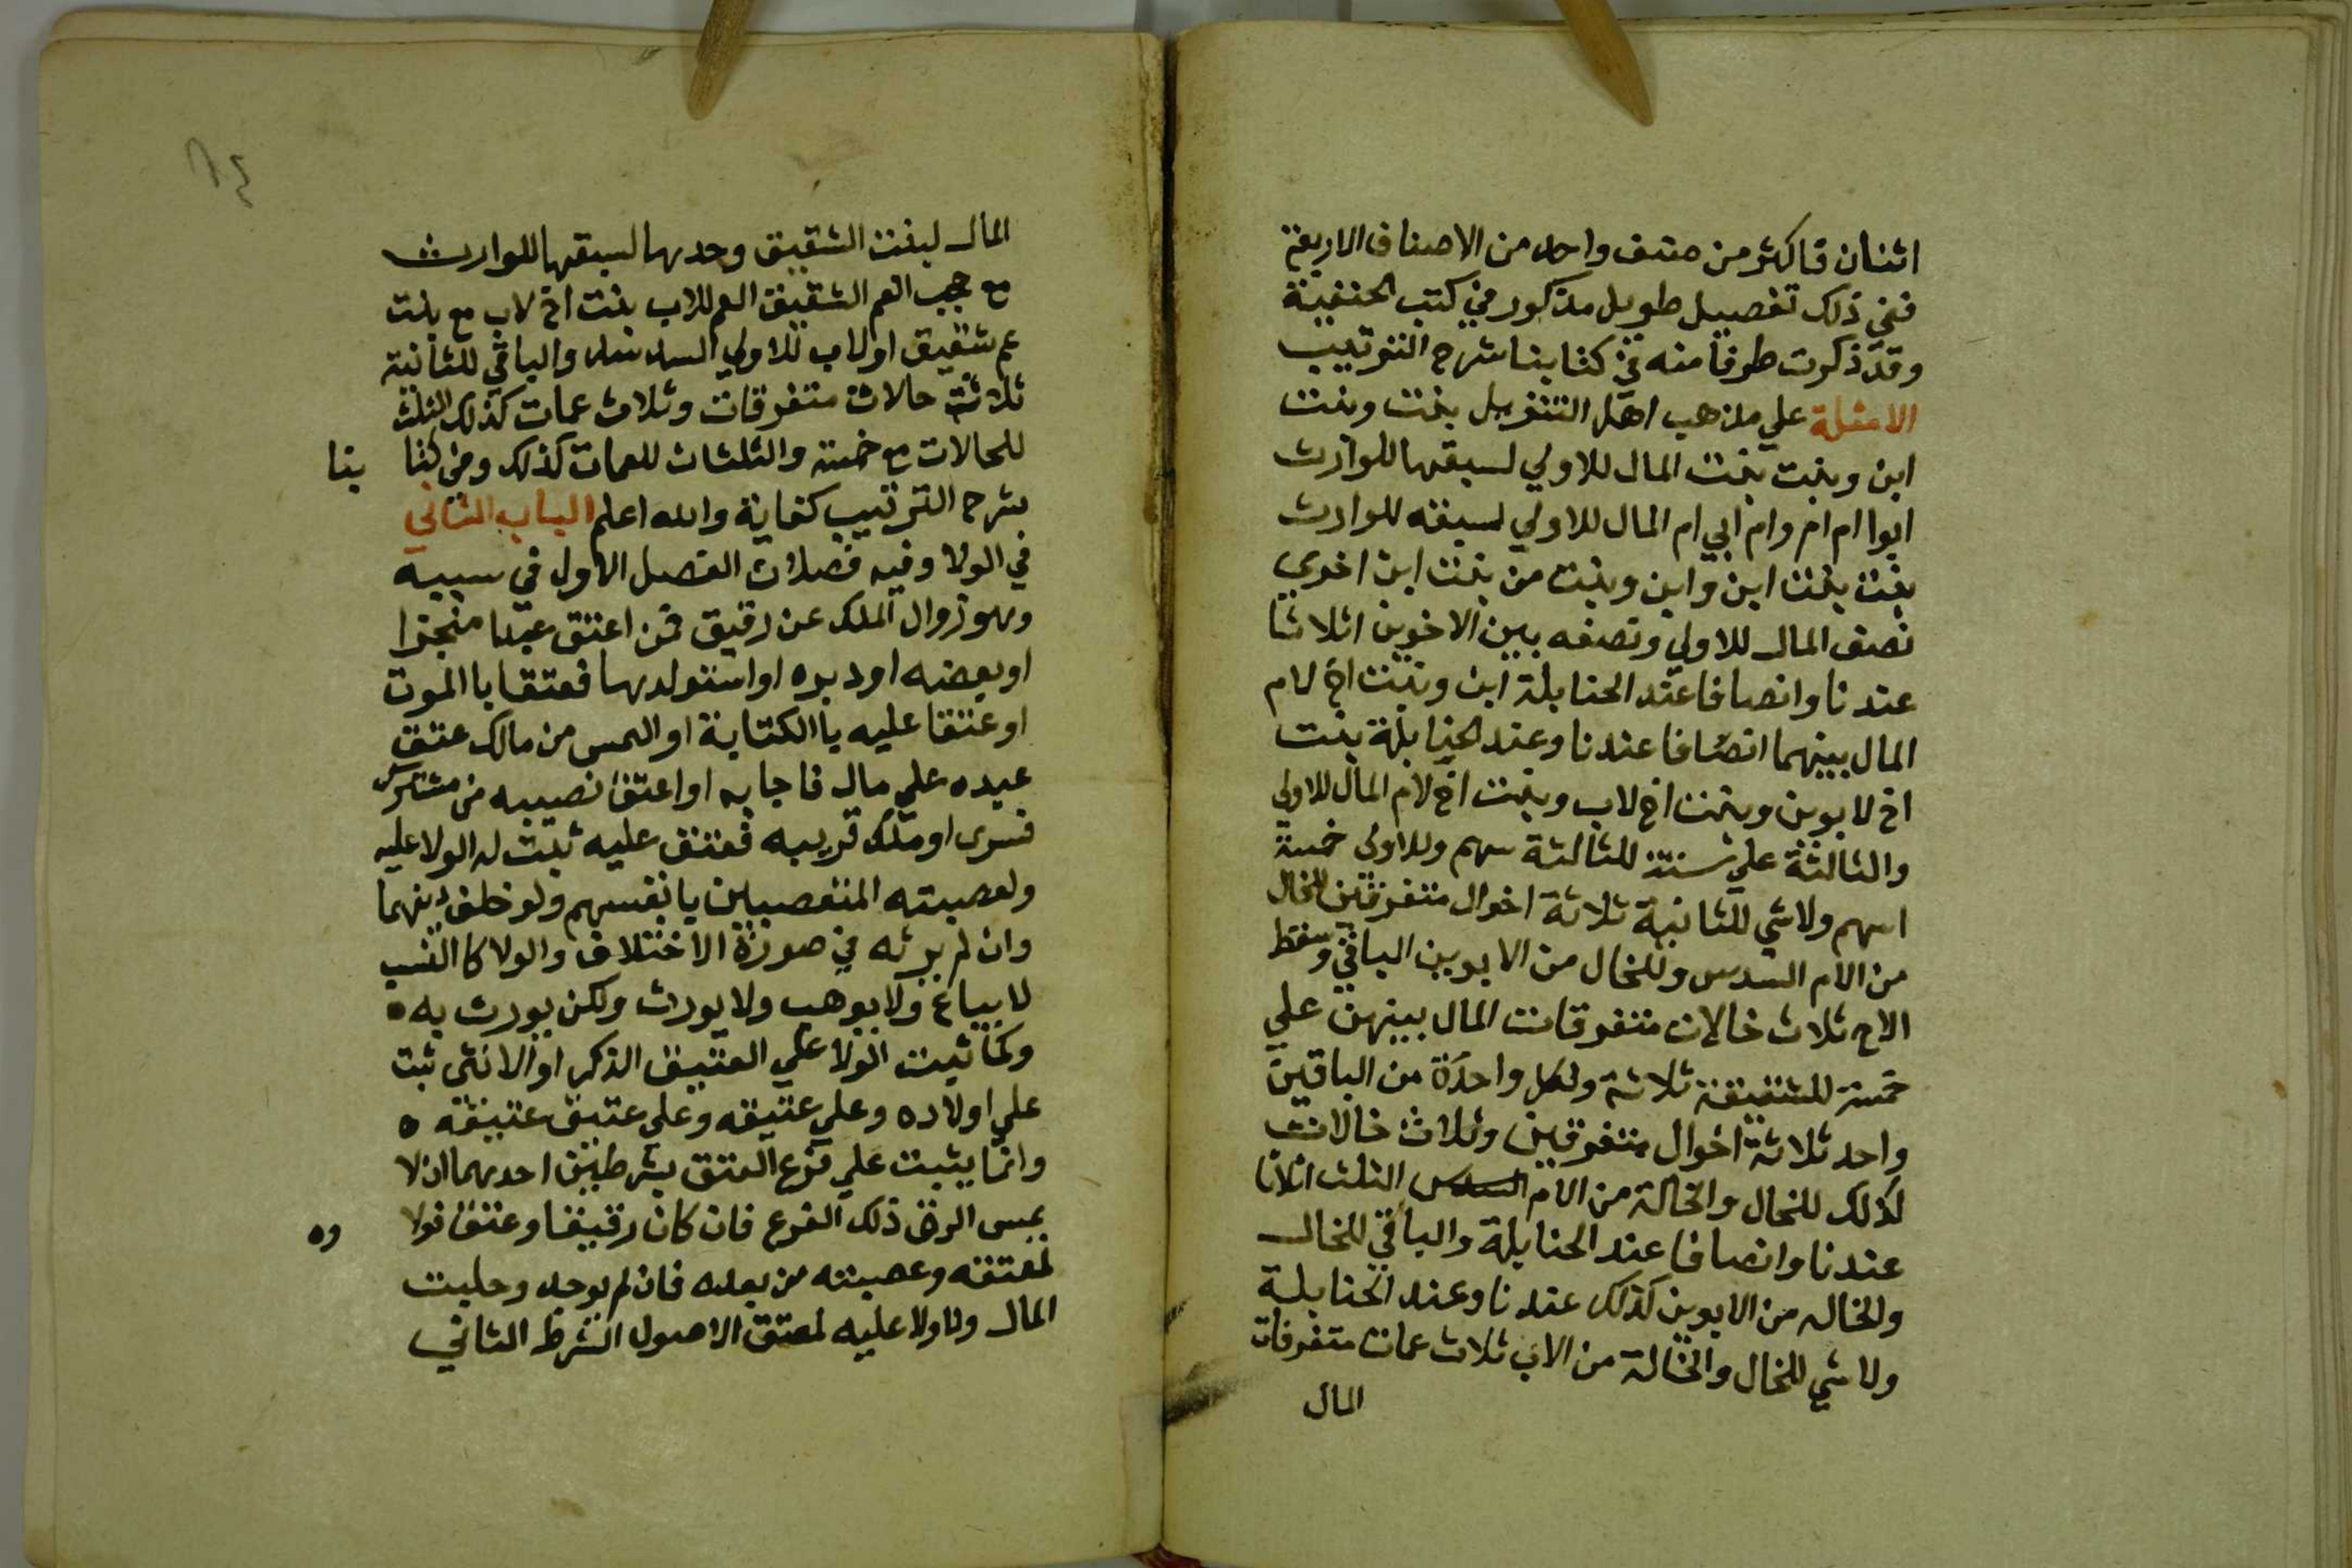 اثنان فاكثر من صنف واحد من الاصناف الاربعة
ففي ذلك تفصيل طويل مذكور في كتب الحنفية
وقد ذكرت طرفا منه في كتابنا شرح الترتيب
الامثلة علي مذهب اهل التنزيل بنت وبنت
ابن وبنت بنت المال للاولي لسبقها للوارث
ابوا ام ام وام ابي ام المال للاولي لسبقه للوارث
بنت بنت ابن وابن وبنت من بنت ابن اخري
نصف المال للاولي ونصفه بين الاخوين اثلاثا
عندنا وانصافا عند الحنابلة ابن وبنت اخ لام
المال بينهما انصافا عندنا وعند الحنابلة بنت
اخ لابوين وبنت اخ لاب وبنت اخ لام المال للاولي
والثالثة علي ستة للثالثة سهم وللاولي خمسة
اسهم ولاشي للثانية ثلاثة اخوال متفرقين للخال
من الام السدس وللخال من الابوين الباقي وسقط
الاخ ثلاث خالات متفرقات المال بينهن علي
خمسة للشقيقة ثلاثة ولكل واحدة من الباقين
واحد ثلاثة اخوال متفرقين وثلاث خالات
كذلك للخال والخالة من الام السدس الثلث اثلاثا
عندنا وانصافا عند الحنابلة والباقي للخال
والخاله من الابوين كذلك عندنا وعند الحنابلة
ولاشي للخال والخالة من الاب ثلاث عمات متفرقات
المال
٦٤
المال لبنت الشقيق وحدها لسبقها للوارث
مع حجب العم الشقيق العم للاب بنت اخ لاب مع بنت
عم شقيق او لاب للاولي السدس والباقي للثانية
ثلاثة حالات متفرقات وثلاث عمات كذلك الثلث
للحالات مع خمسة والثلثان للعمات كذلك وفي كتا بنا
شرح الترتيب كفاية والله اعلم الباب الثاني
في الولا وفيه فصلان الفصل الاول في سببه
وهو زوال الملك عن رقيق فمن اعتق عبدا منجزا
او بعضه او دبره او استولدها فعتقا باالموت
او عتقا عليه باالكتابة او التمس من مالك عتق
عبده علي مال فاجابه او اعتق نصيبه من مشترك
فسرى او ملك قريبه فعتق عليه ثبت له الولا عليه
ولعصبته المتعصبين بانفسهم ولو خلف دينهما
وان لم يرثه في صورة الاختلاف والولا كا النسب
لا يباع ولا يوهب ولا يورث ولكن يورث به ه
وكما ثبت الولا علي العتيق الذكر او الانثي ثبت
علي اولاده وعلي عتيقه وعلي عتيق عتيقه ه
وانما يثبت علي فرع العتق بشرطين احدهما ان لا
يمس الرق ذلك الفرع فان كان رقيقا وعتق فولا وه
لمعتقه وعصبته من بعده فان لم يوجد وحلبت
المال ولا ولا عليه لمعتق الاصول الشرط الثاني